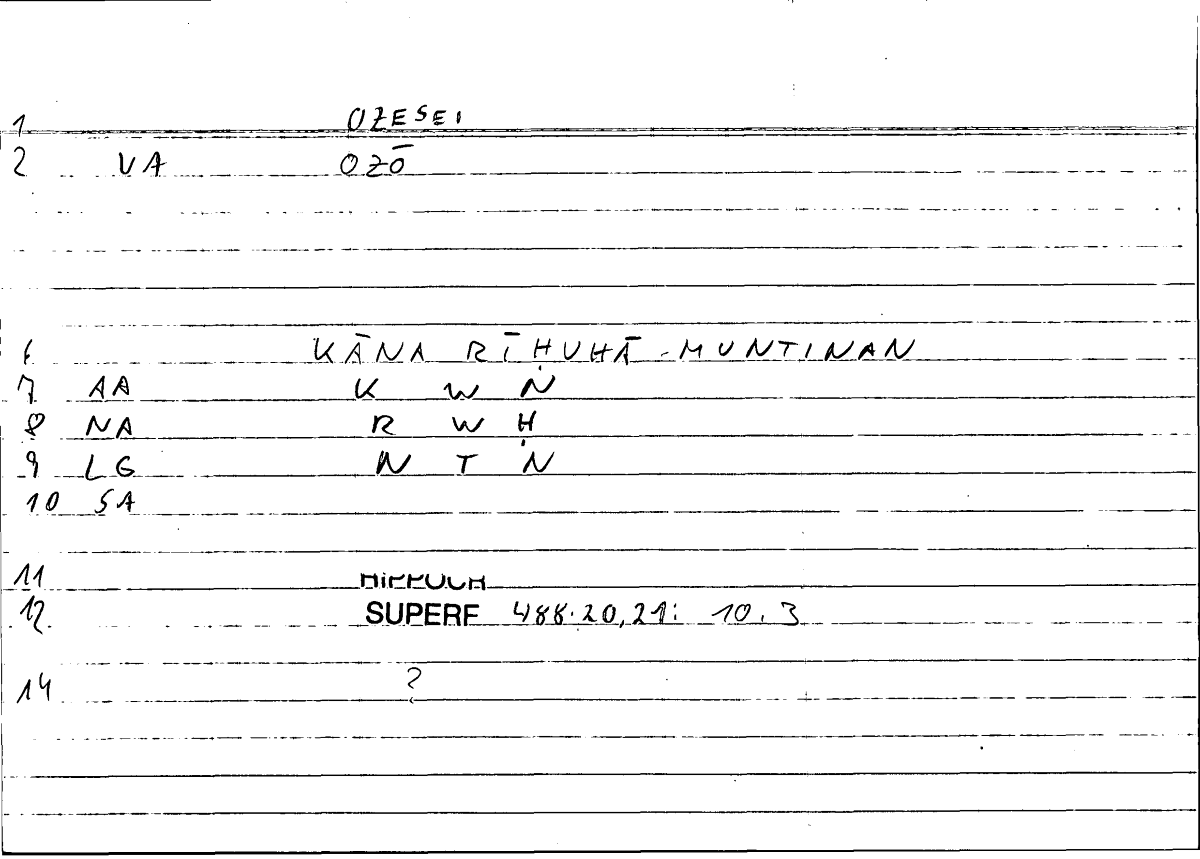 1 OZESEI
2 VA OZŌ
6 KĀNA RĪḤUHĀ-MUNTINAN
7 AA K W N
8 NA R W Ḥ
9 LG N T N
10 SA
11 HIPPOCR
12. SUPERF 488.20,21: 10.3
14 ?